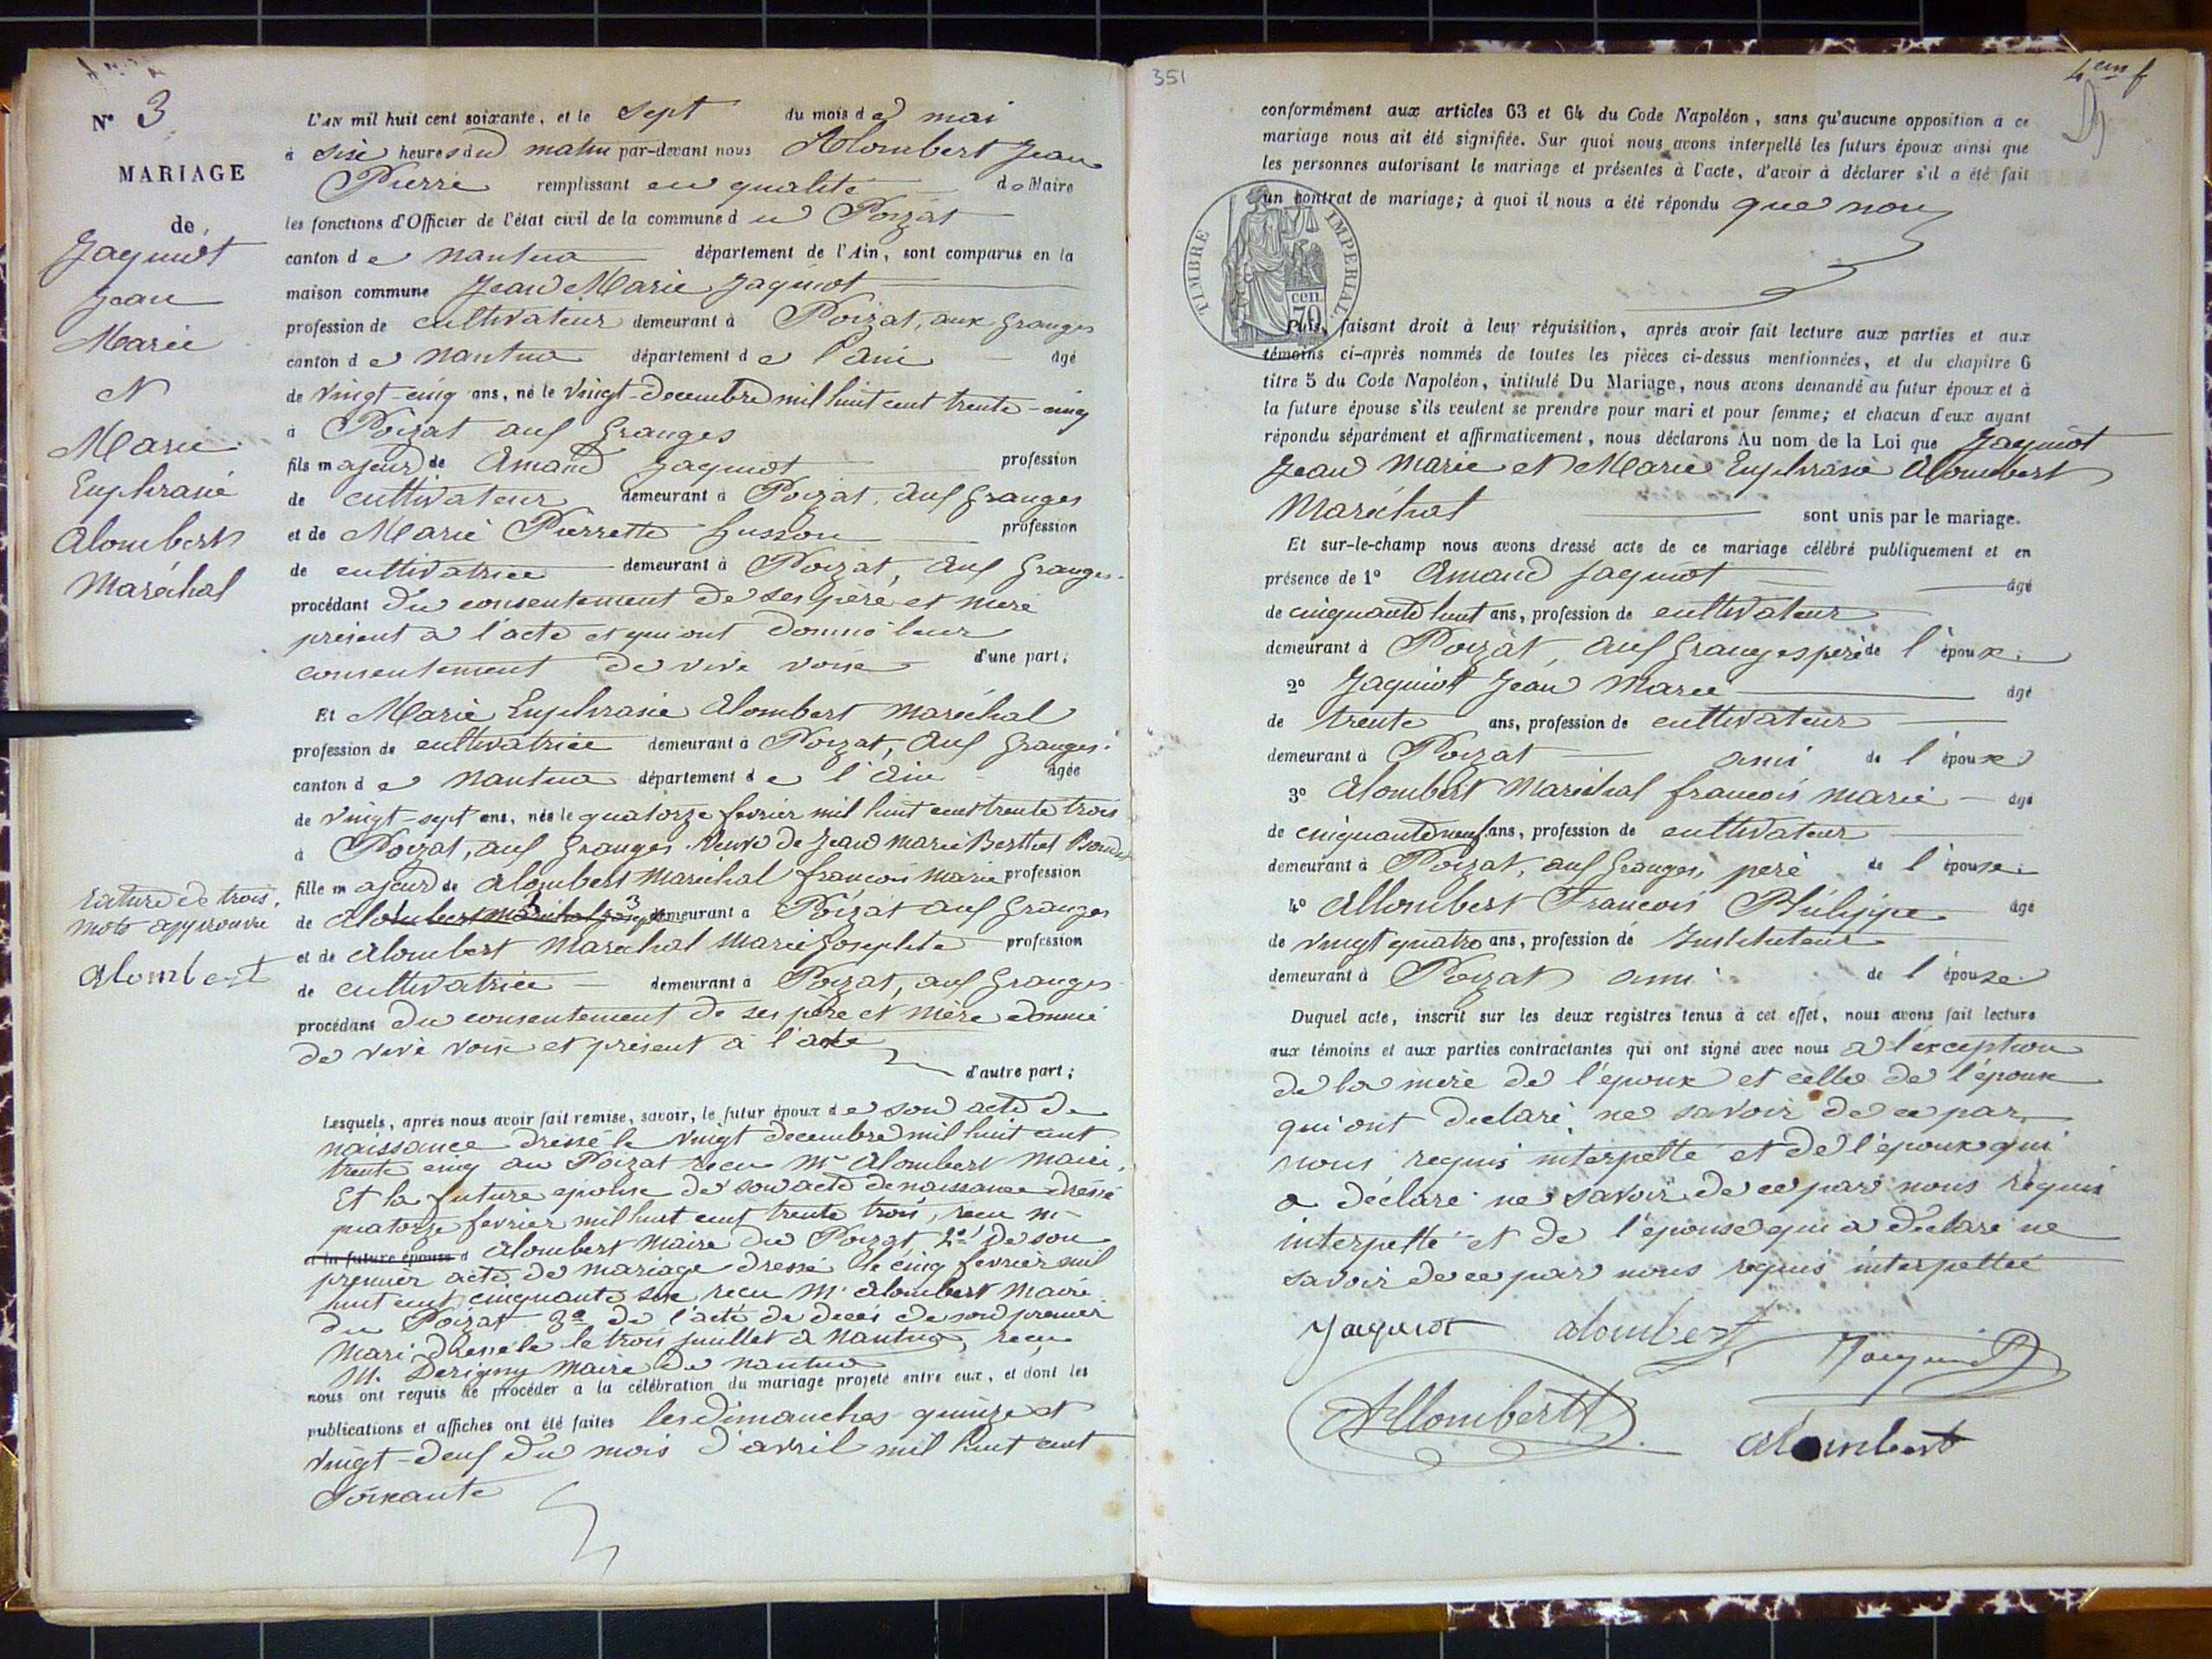 N° 3
MARIAGE
de
Jaquiot
Jean
Marie
et
Marie
Euphrasie
Alombert
Maréchal
rature de trois
mots approuvée
Alombert
L'AN mil huit cent soixante, et le sept du mois de mai
à six heures du matin par-devant nous Alombert Jean
Pierre remplissant en qualité de Maire
les fonctions d'Officier de l'état civil de la commune du Poizat
canton de Nantua département de l'Ain, sont comparus en la
maison commune Jean Marie Jaquiot
profession de cultivateur demeurant à Poizat, aux Granges
canton de Nantua département de l'Ain âgé
de vingt-cinq ans, né le vingt-decembre mil huit cent trente-cinq
à Poizat aux Granges
fils majeur de Amand Jaquiot profession
de cultivateur demeurant à Poizat, aux Granges
et de Marie Pierrette Husson profession
de cultivatrice demeurant à Poizat, aux Granges.
procédant du consentement de ses père et mère
présent a l'acte et qui ont donné leur
consentement de vive voix d'une part;
Et Marie Euphrasie Alombert Maréchal
profession de cultivatrice demeurant à Poizat, aux Granges.
canton de Nantua département de l'Ain âgée
de vingt-sept ans, née le quatorze fevrier mil huit cent trente trois
à Poizat, aux Granges. Veuve de Jean Marie Berthet
fille majeur de Alombert Maréchal francois Marie profession
de Alombert Maréchal demeurant à Poizat aux Granges
et de Alombert Marechal Marie Josephte profession
de cultivatrice demeurant à Poizat, aux Granges
procédant du consentement de ses père et mère donné
de vive voix et présent a l'acte
d'autre part;
Lesquels, après nous avoir fait remise, savoir, le futur époux de son acte de
naissance dressé le vingt decembre mil huit cent
trente cinq au Poizat recu Mr Alombert Maire,
Et la future epouse de son acte de naissance dressé
quatorze fevrier mil huit cent trente trois, recu Mr
et la future épouse d Alombert Maire du Poizat 2° de son
premier acte de mariage dressé le cinq fevrier mil
huit cent cinquante six recu Mr Alombert Maire
du Poizat 3° de l'acte de deces de son premier
Mari dressé le le trois juillet a Nantua, recu
M. Derigny Maire de Nantua
nous ont requis de procéder à la célébration du mariage projeté entre eux, et dont les
publications et affiches ont été faites les Dimanches quinze et
vingt-deux du mois d'avril mil huit cent
soixante
351
conformément aux articles 63 et 64 du Code Napoléon, sans qu'aucune opposition à ce
mariage nous ait été signifiée. Sur quoi nous avons interpellé les futurs époux ainsi que
les personnes autorisant le mariage et présentes à l'acte, d'avoir à déclarer s'il a été fait
un contrat de mariage; à quoi il nous a été répondu que non
TIMBRE IMPERIAL
70 cen
Puis, faisant droit à leur réquisition, après avoir fait lecture aux parties et aux
témoins ci-après nommés de toutes les pièces ci-dessus mentionnées, et du chapitre 6
titre 5 du Code Napoléon, intitulé Du Mariage, nous avons demandé au futur époux et à
la future épouse s'ils veulent se prendre pour mari et pour femme; et chacun d'eux ayant
répondu séparément et affirmativement, nous déclarons Au nom de la Loi que Jaquiot
Jean Marie et Marie Euphrasie Alombert
Maréchal sont unis par le mariage.
Et sur-le-champ nous avons dressé acte de ce mariage célébré publiquement et en
présence de 1° Amand Jaquiot âgé
de cinquante huit ans, profession de cultivateur
demeurant à Poizat, aux Granges père de l'époux.
2° Jaquiot Jean Marie âgé
de trente ans, profession de cultivateur
demeurant à Poizat ami de l'époux
3° Alombert Maréchal francois Marie âgé
de cinquante neuf ans, profession de cultivateur
demeurant à Poizat, aux Granges, père de l'épouse.
4° Allombert Francois Philippe âgé
de vingt quatre ans, profession de Instituteur
demeurant à Poizat ami de l'épouse
Duquel acte, inscrit sur les deux registres tenus à cet effet, nous avons fait lecture
aux témoins et aux parties contractantes qui ont signé avec nous a l'exception
de la mère de l'époux et celle de l'épouse
qui ont déclaré ne savoir de ce par
nous requis interpellé et de l'époux qui
a déclaré ne savoir de ce par nous requis
interpellé et de l'épouse qui a déclaré ne
savoir de ce par nous requis interpellée
Jaquiot Alombert Jaquiot
Allombert Alombert